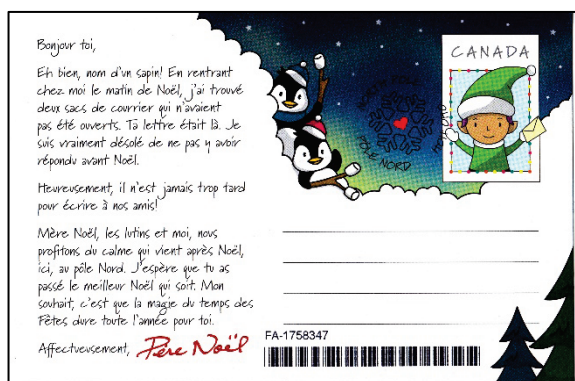 Bonjour toi,
Eh bien, nom d'un sapin! En rentrant
chez moi le matin de Noël, j'ai trouvé
deux sacs de courrier qui n'avaient
pas été ouverts. Ta lettre était là. Je
suis vraiment désolé de ne pas y avoir
répondu avant Noël.
Heureusement, il n'est jamais trop tard
pour écrire à nos amis!
Mère Noël, les lutins et moi, nous
profitons du calme qui vient après Noël,
ici, au pôle Nord. J'espère que tu as
passé le meilleur Noël qui soit. Mon
souhait, c'est que la magie du temps des
Fêtes dure toute l'année pour toi.
Affectueusement, Père Noël
NORTH POLE
PÔLE NORD
HOH OHO
CANADA
FA-1758347